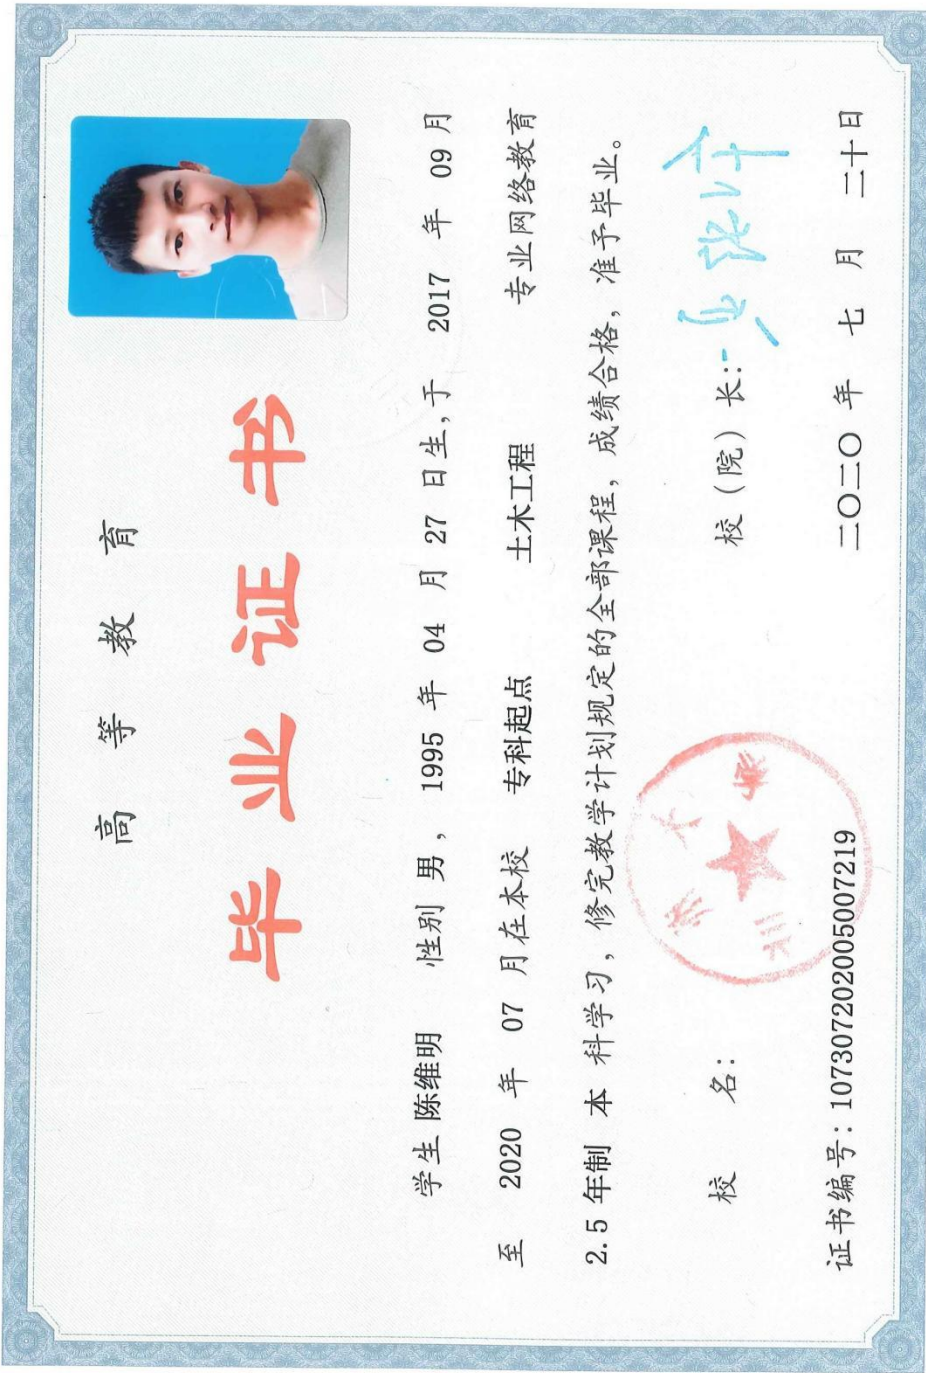 高等教育
毕业证书
学生 陈维明 性别 男 ， 1995 年 04 月 27 日生，于 2017 年 09 月
至 2020 年 07 月在本校 专科起点 土木工程 专业网络教育
2.5 年制 本 科学习，修完教学计划规定的全部课程，成绩合格，准予毕业。
校 名： 校（院）长：
证书编号：107307202005007219 二〇二〇 年 七 月 二十日